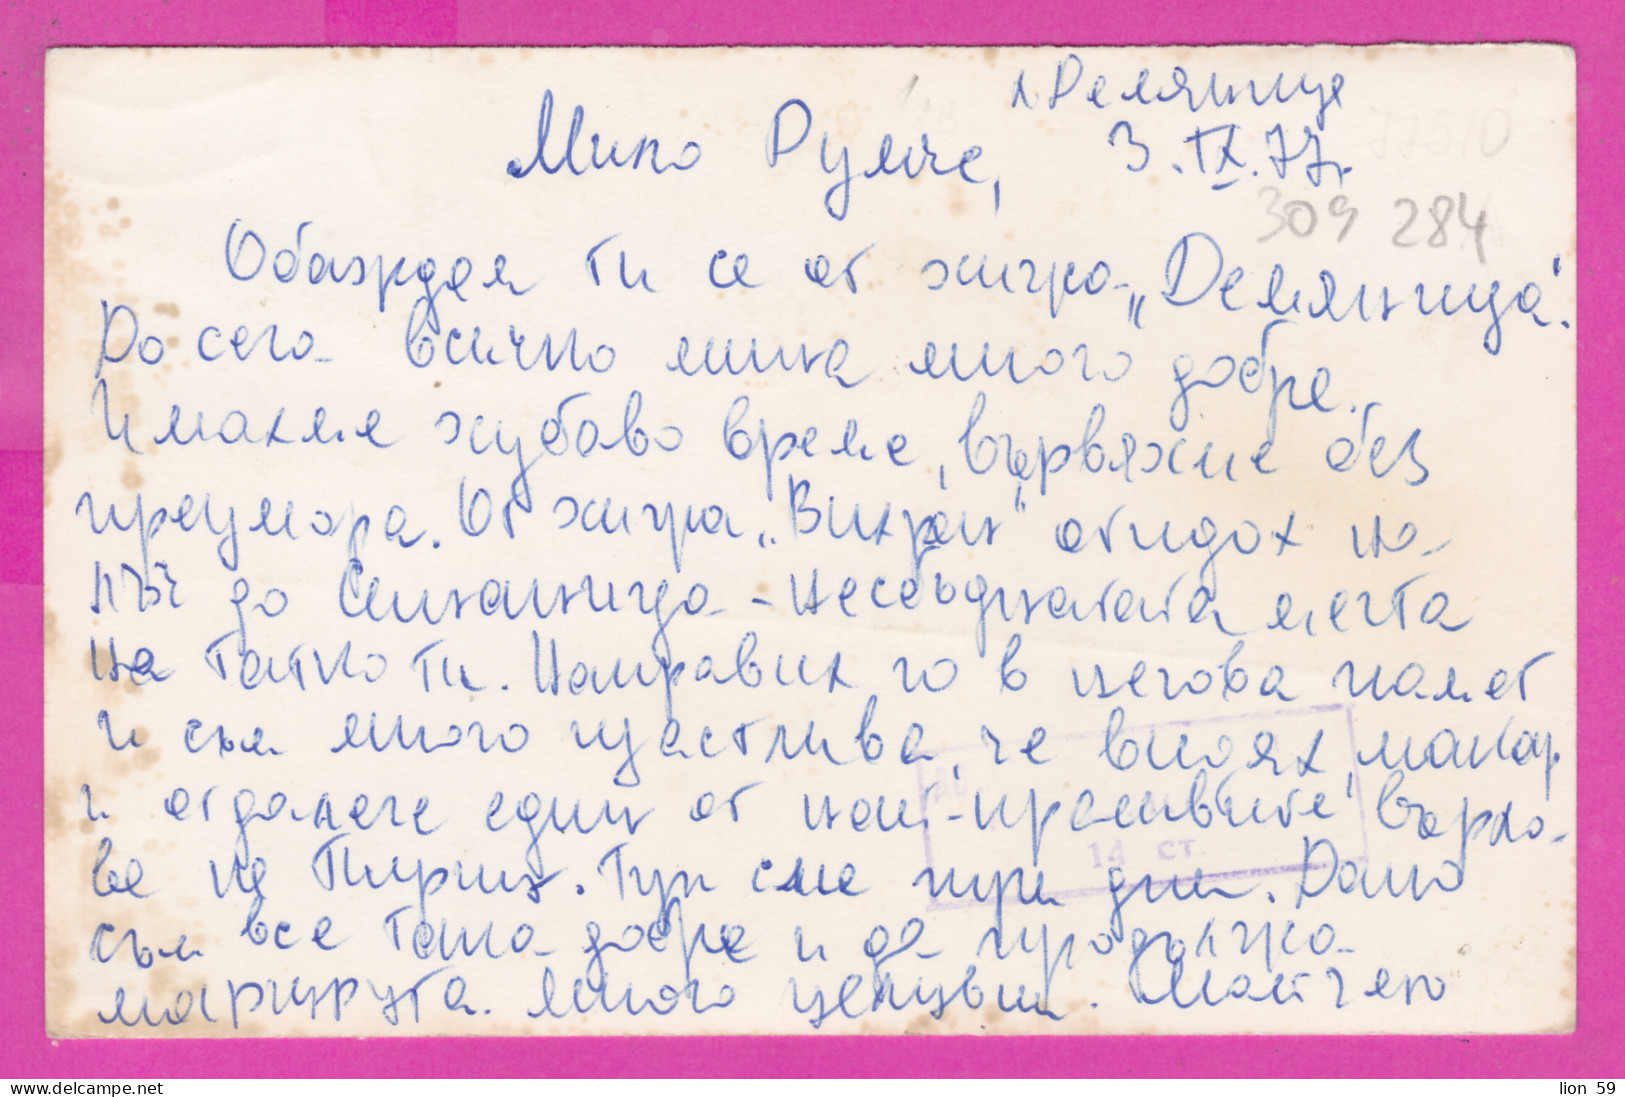 х. Демяница
Мило Румче, 3.IX.77г.
309 284
Обаждам ти се от хижа „Демяница“.
До сега всичко мина много добре.
Имахме хубаво време, вървяхме без
преумора. От хижа „Вихрен“ отидох на-
път до Синаница - несбъднатата мечта
на татко ти. Направих го в негова памет
и съм много щастлива, че видях, макар
и отдалече един от най-красивите върхо-
ве на Пирин. Тук сме три дни. Дано
съм все така добре и да продължа
маршрута. Много целувки.
14 СТ.
www.delcampe.net
lion 59